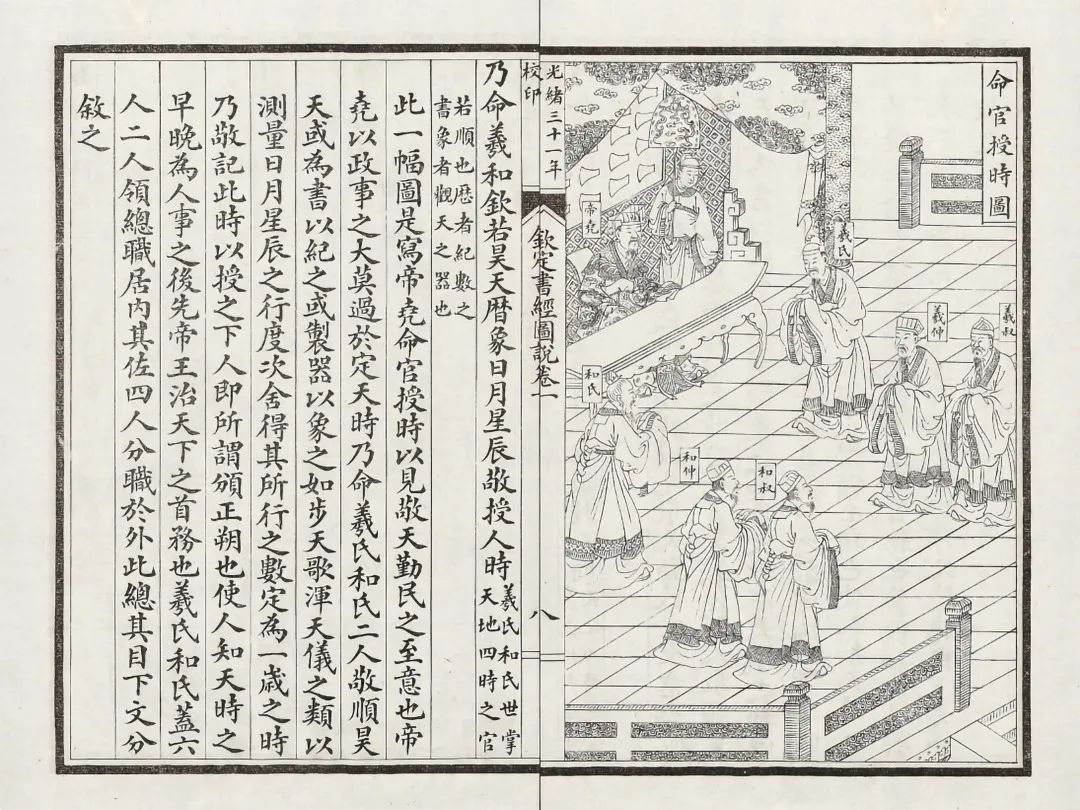 命官授時圖
羲叔
羲仲
羲氏
帝堯
和氏
和仲
和叔
光緒三十一年
校印
欽定書經圖說卷一
八
乃命羲和欽若昊天曆象日月星辰敬授人時羲氏和氏世掌
天地四時之官
若順也曆者紀數之
書象者觀天之器也
此一幅圖是寫帝堯命官授時以見敬天勤民之至意也帝
堯以政事之大莫過於定天時乃命羲氏和氏二人敬順昊
天或為書以紀之或製器以象之如步天歌渾天儀之類以
測量日月星辰之行度次舍得其所行之數定為一歲之時
乃敬記此時以授之下人即所謂頒正朔也使人知天時之
早晚為人事之後先帝王治天下之首務也羲氏和氏蓋六
人二人領總職居內其佐四人分職於外此總其目下文分
敘之